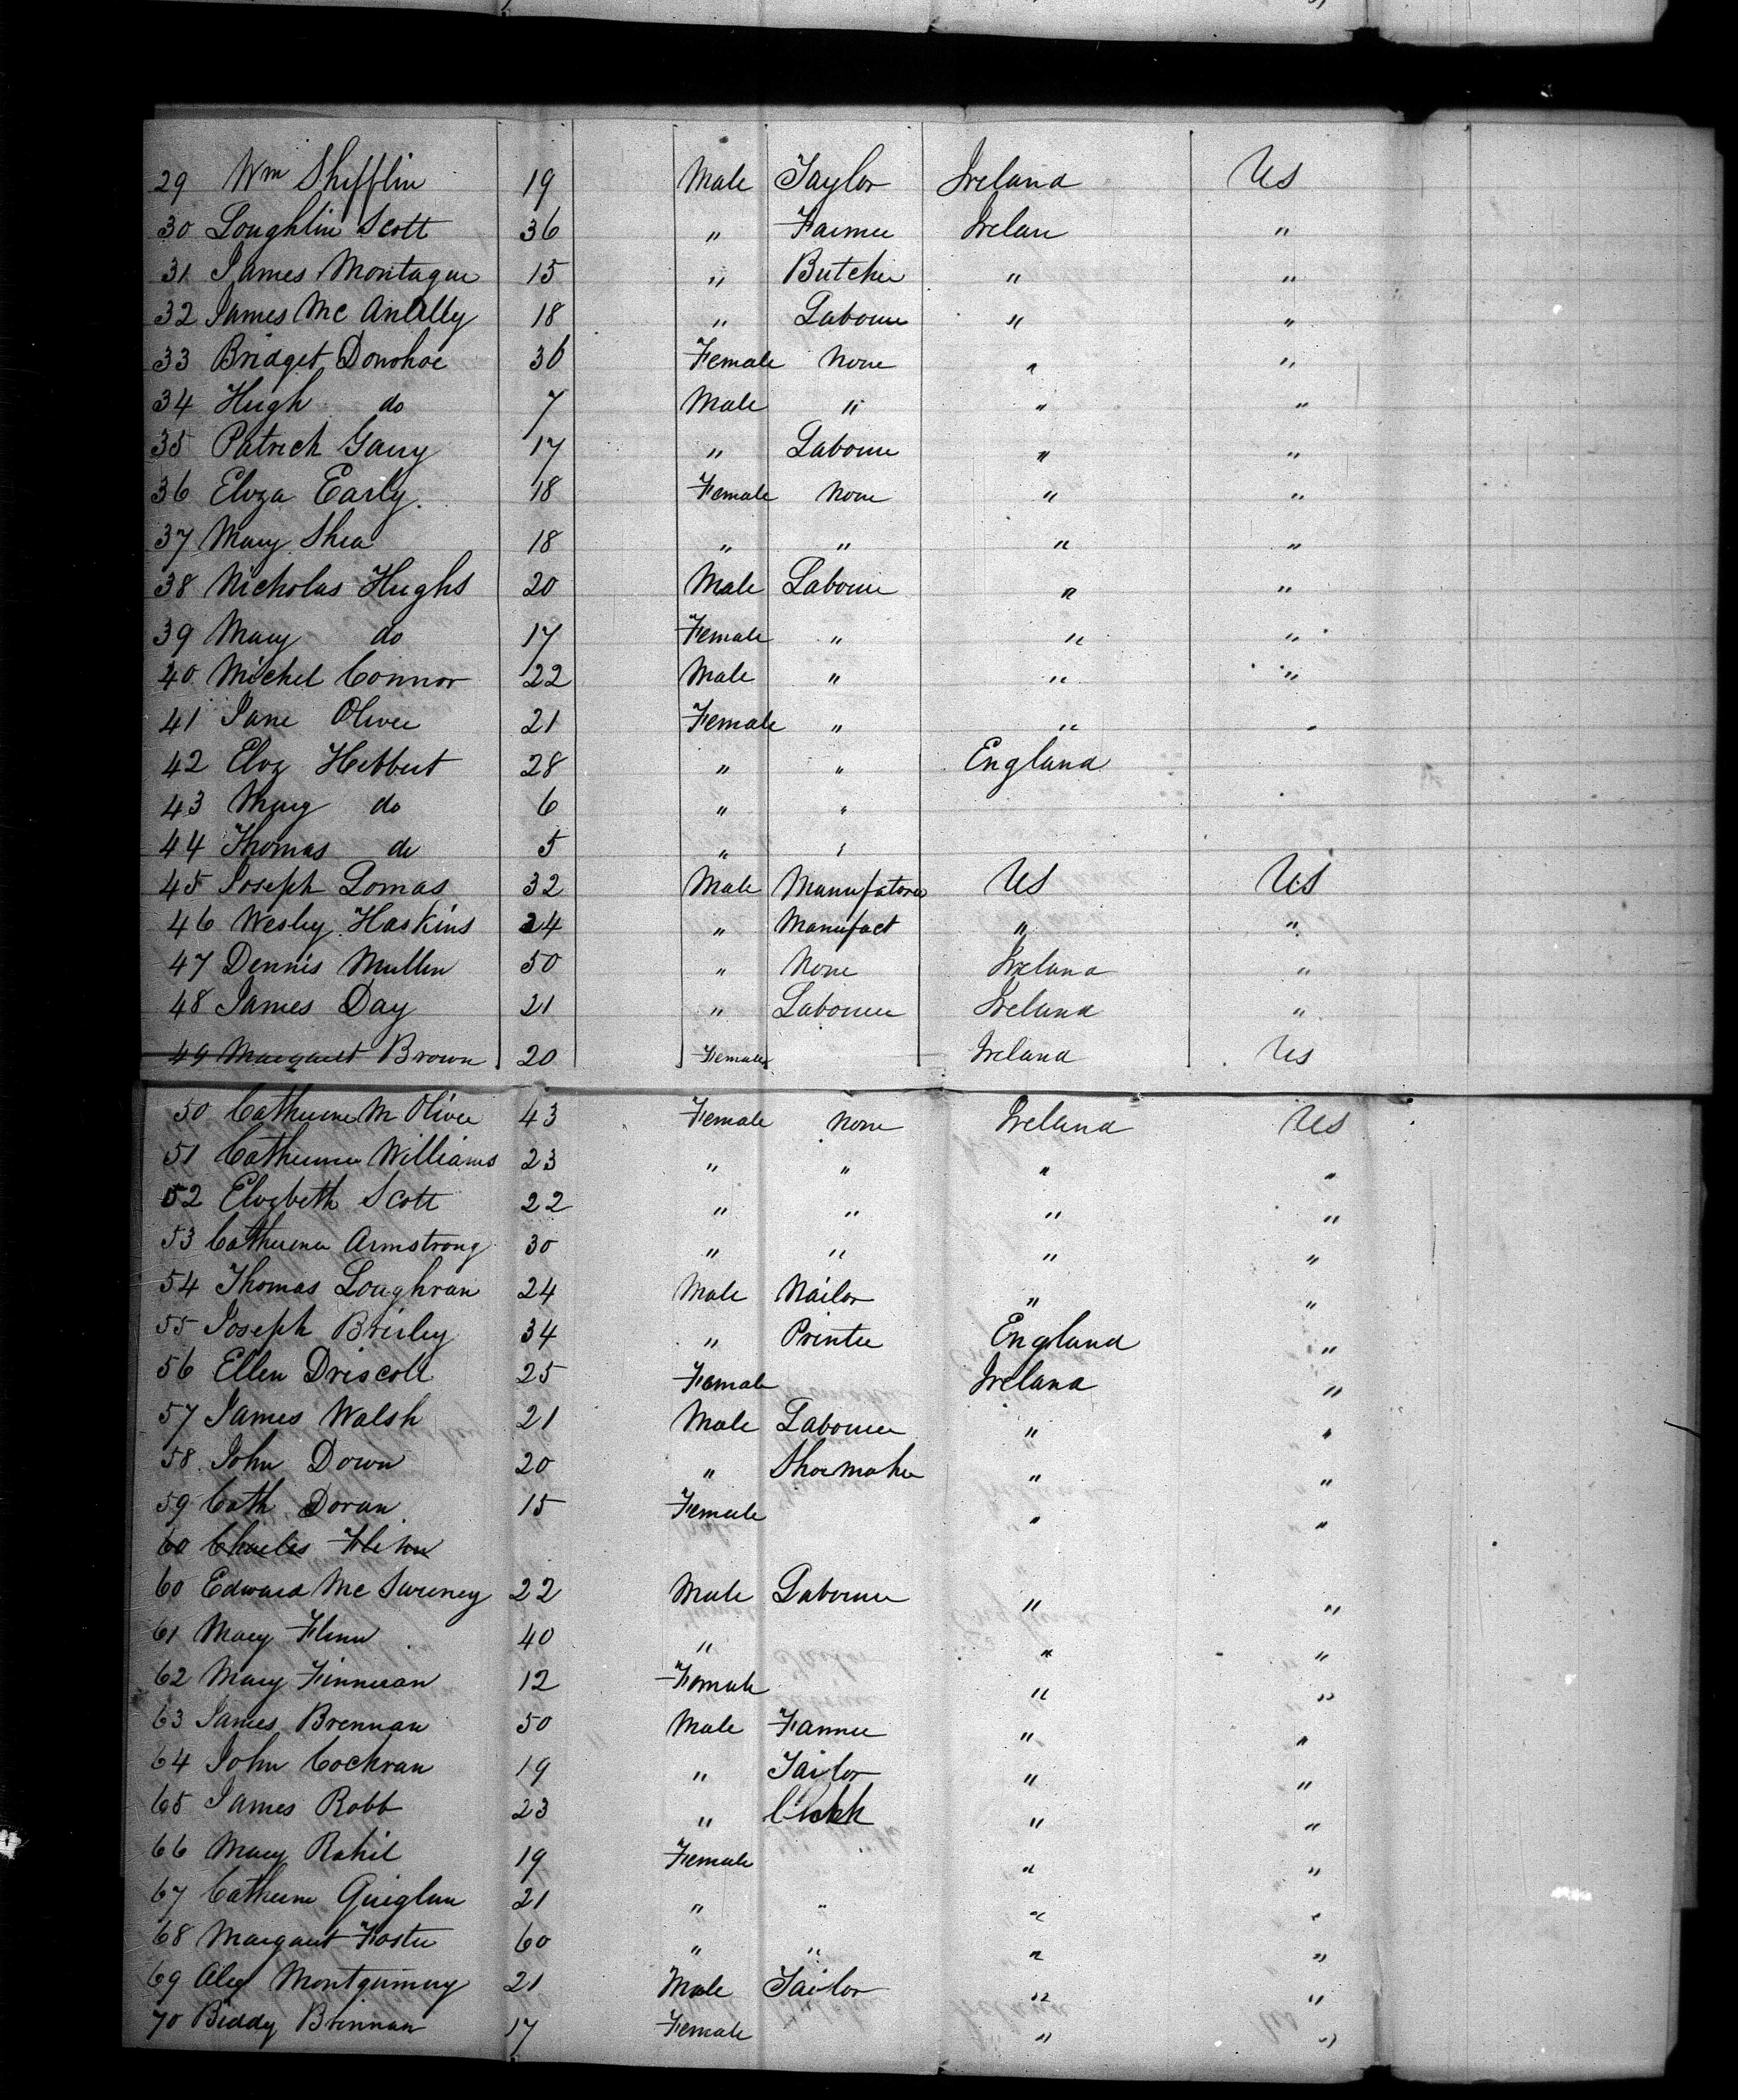 29 Wm Shifflin 19 Male Taylor Ireland US
30 Loughlin Scott 36 " Farmer Irelan "
31 James Montague 15 " Butcher " "
32 James Mc Anally 18 " Labourer " "
33 Bridget Donohoe 36 Female None " "
34 Hugh do 7 Male " " "
35 Patrick Garry 17 " Labourer " "
36 Eliza Early 18 Female None " "
37 Mary Shea 18 " " " "
38 Nicholas Hughs 20 Male Labourer " "
39 Mary do 17 Female " " "
40 Michel Connor 22 Male " " "
41 Jane Oliver 21 Female " " "
42 Eliz Hebbert 28 " " England
43 Mary do 6 " "
44 Thomas do 5 " "
45 Joseph Lomas 32 Male Manufatorer US US
46 Wesley Haskins 24 " Manufact " "
47 Dennis Mullen 50 " None Ireland "
48 James Day 21 " Labourer Ireland "
49 Margaret Brown 20 Female Ireland US
50 Catherine M Oliver 43 Female None Ireland US
51 Catherine Williams 23 " " " "
52 Elizbeth Scott 22 " " " "
53 Catherine Armstrong 30 " " " "
54 Thomas Loughran 24 Male Nailor " "
55 Joseph Brierley 34 " Printer England "
56 Ellen Driscoll 25 Female Ireland "
57 James Walsh 21 Male Labourer " "
58 John Doran 20 " Shoemaker " "
59 Cath Doran 15 Female " "
60 Charles Flinn
60 Edward Mc Sweeney 22 Male Labourer " "
61 Mary Flinn 40 " " "
62 Mary Finneran 12 Female " "
63 James Brennan 50 Male Farmer " "
64 John Cochran 19 " Tailor " "
65 James Robb 23 " Clerk " "
66 Mary Rahil 19 Female " "
67 Catherine Quiglan 21 " " " "
68 Margaret Foster 60 " " " "
69 Alex Montgumery 21 Male Tailor " "
70 Biddy Brinnan 17 Female " "